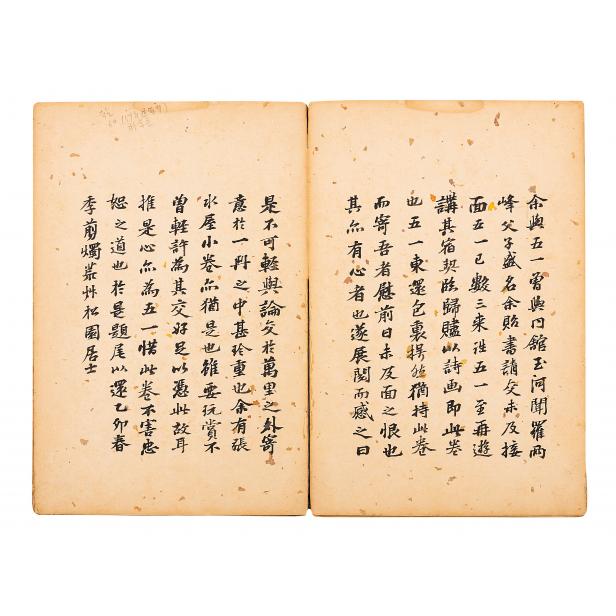 余與五一曾與同館玉河聞羅兩
峰父子盛名余貽書請交未及接
面五一已數三來往五一至再遊
講其宿契臨歸贐以詩画即此卷
也五一東還包裹携然猶持此卷
而寄吾者慰前日未及面之恨也
其亦有心者也遂展閱而感之曰
是不可輕與論交於萬里之外寄
意於一冊之中甚珍重也余有張
水屋小卷亦猶是也雖要玩賞不
曾輕許為其交好足以憑此故耳
推是心亦為五一惜此卷不害忠
恕之道也於是題尾以還乙卯春
季前燭
松園居士